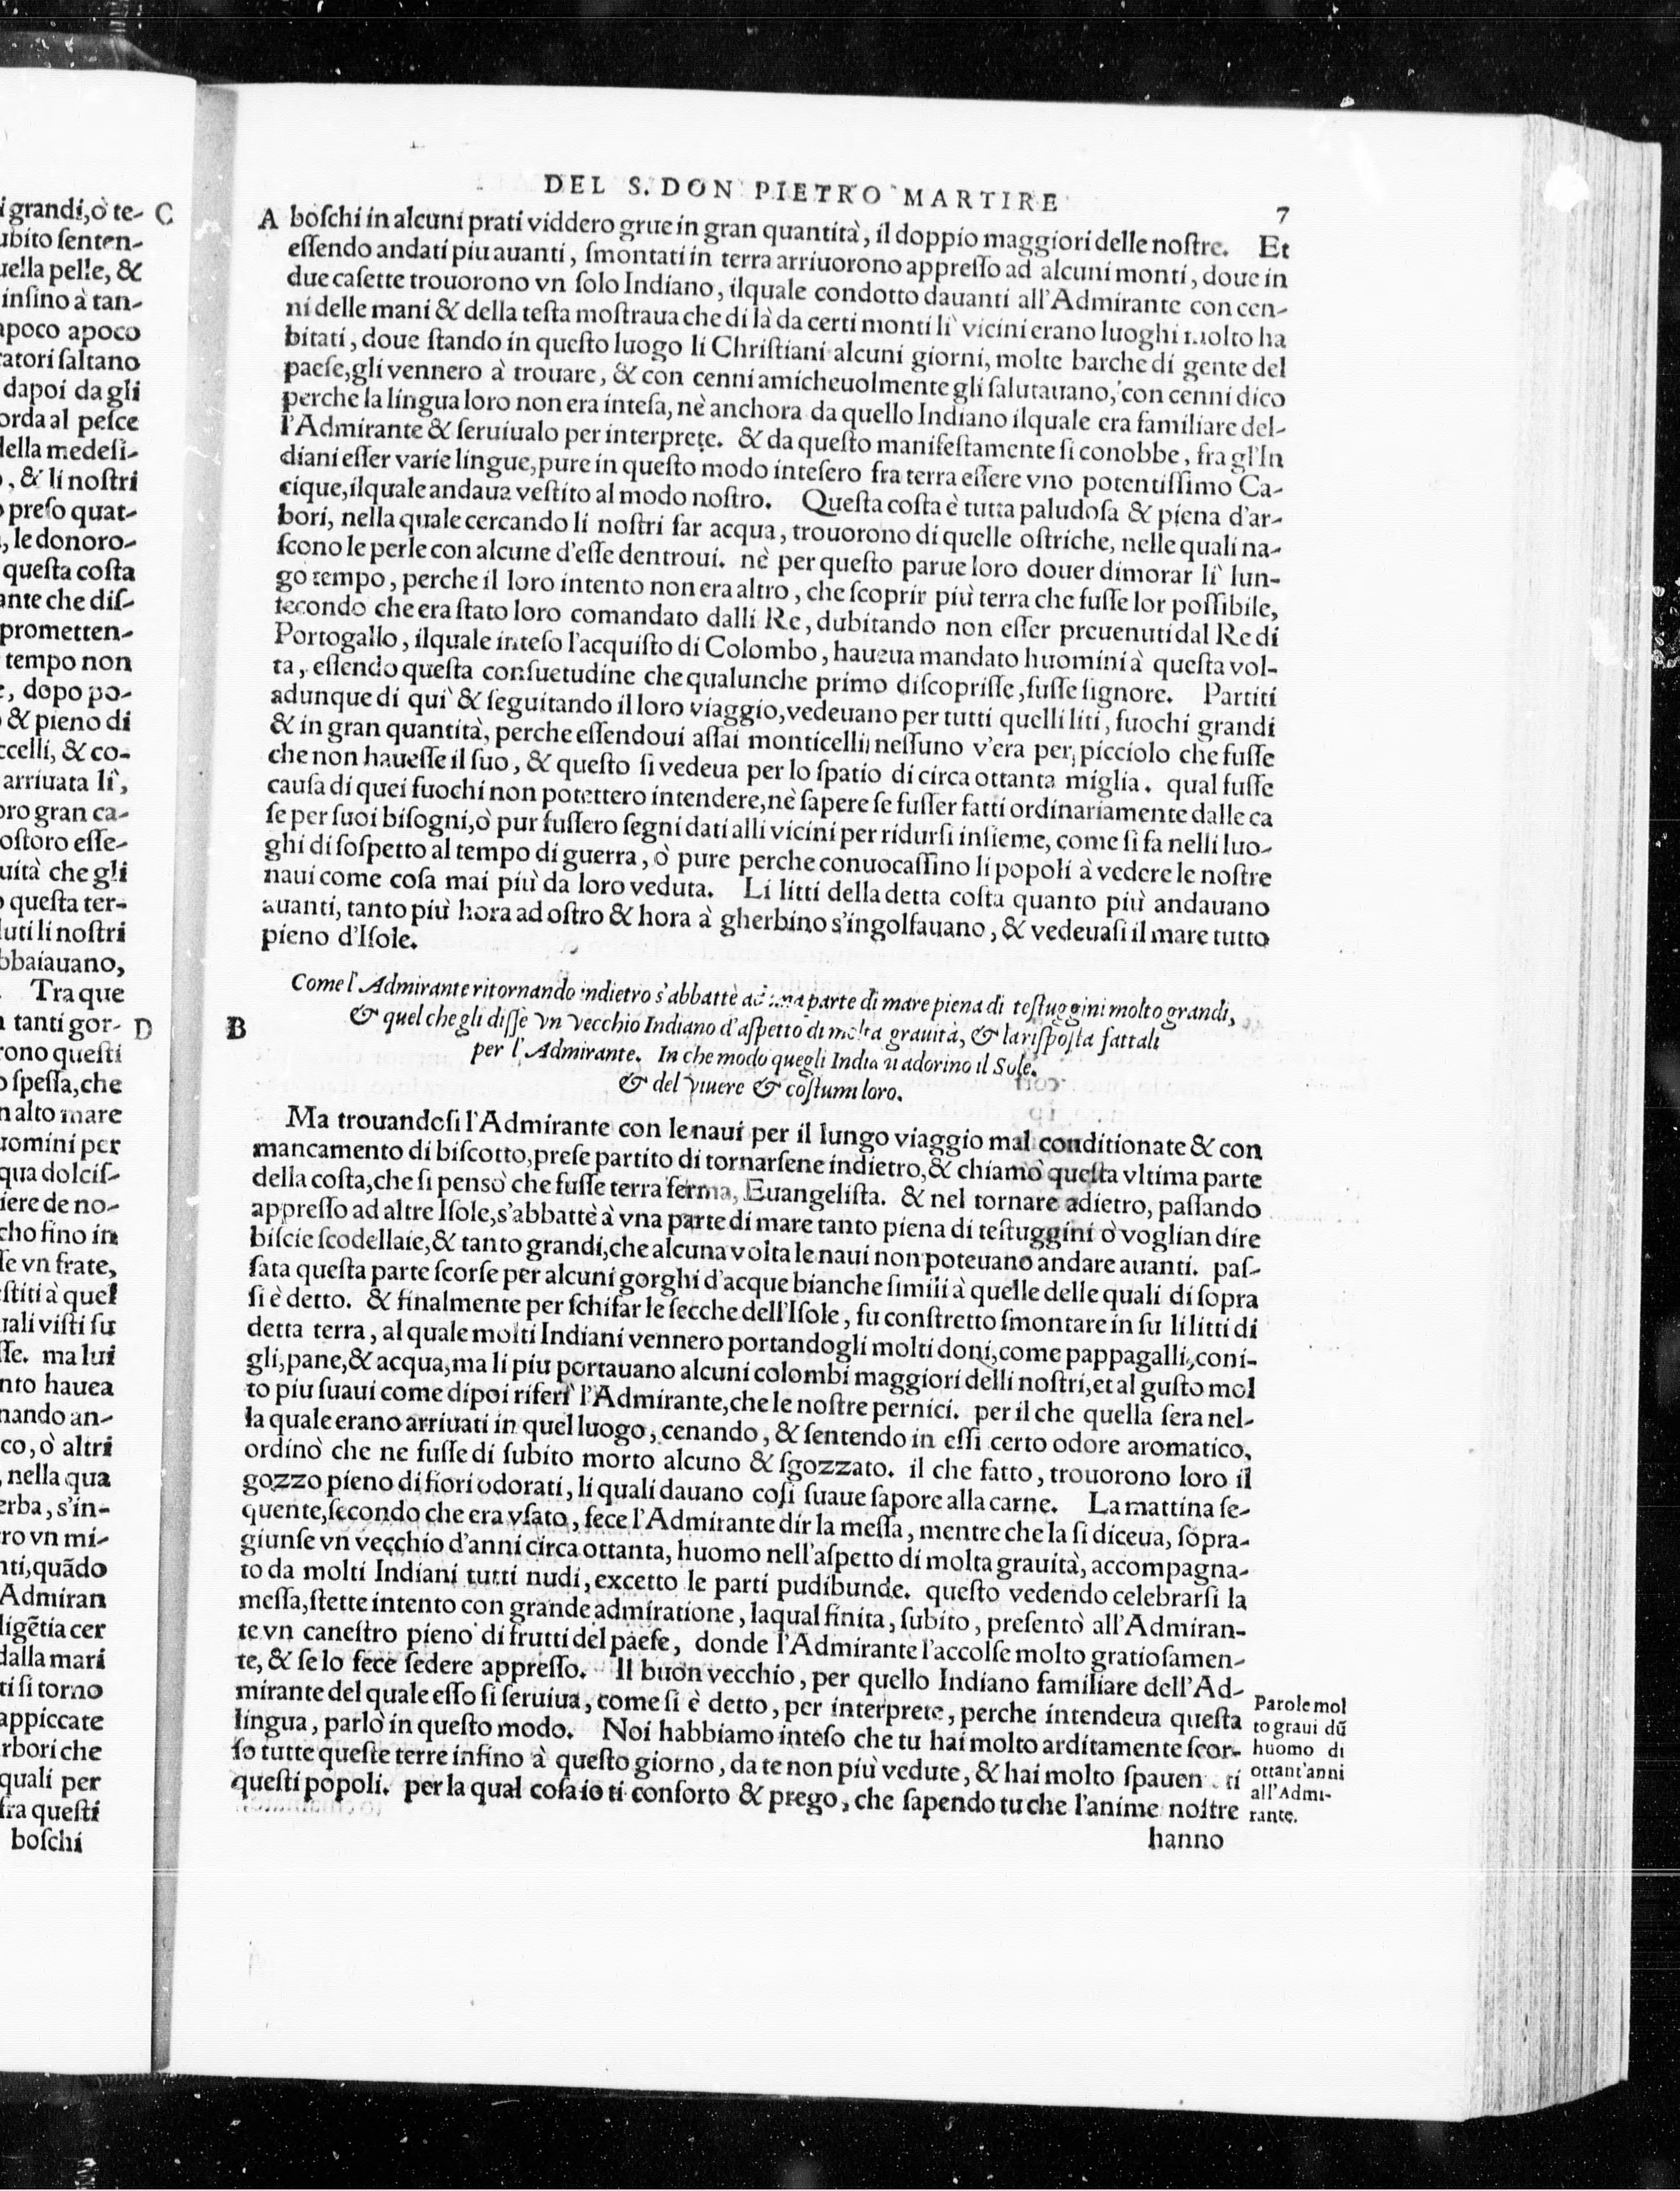 i grandi, ò te-
ubito senten-
uella pelle, &
insino à tan-
apoco apoco
catori saltano
dapoi da gli
orda al pesce
della medesi-
, & li nostri
preso quat-
, le donoro-
questa costa
ante che dis-
prometten-
tempo non
e, dopo po-
& pieno di
ccelli, & co-
arriuata lì,
oro gran ca-
ostoro esse-
uità che gli
questa ter-
luti li nostri
bbaiauano,
Tra que
tanti gor-
rono questi
spessa, che
n alto mare
uomini per
qua dolcis-
iere de no-
cho fino in
se vn frate,
stiti à quel
uali visti fu
sse. ma lui
nto hauea
nando an-
co, ò altri
, nella qua
erba, s'in-
ro vn mi-
nti, quãdo
Admiran
ligẽtia cer
dalla mari
ti si torno
appiccate
rbori che
quali per
fra questi
boschi
C
D
DEL S. DON PIETRO MARTIRE
7
A boschi in alcuni prati viddero grue in gran quantità, il doppio maggiori delle nostre. Et
essendo andati piu auanti, smontati in terra arriuorono appresso ad alcuni monti, doue in
due casette trouorono vn solo Indiano, ilquale condotto dauanti all'Admirante con cen-
ni delle mani & della testa mostraua che di là da certi monti lì vicini erano luoghi molto ha
bitati, doue stando in questo luogo li Christiani alcuni giorni, molte barche di gente del
paese, gli vennero à trouare, & con cenni amicheuolmente gli salutauano, con cenni dico
perche la lingua loro non era intesa, nè anchora da quello Indiano ilquale era familiare del-
l'Admirante & seruiualo per interprete. & da questo manifestamente si conobbe, fra gl'In
diani esser varie lingue, pure in questo modo intesero fra terra essere vno potentissimo Ca-
cique, ilquale andaua vestito al modo nostro. Questa costa è tutta paludosa & piena d'ar-
bori, nella quale cercando li nostri far acqua, trouorono di quelle ostriche, nelle quali na-
scono le perle con alcune d'esse dentroui. nè per questo parue loro douer dimorar lì lun-
go tempo, perche il loro intento non era altro, che scoprir più terra che fusse lor possibile,
secondo che era stato loro comandato dalli Re, dubitando non esser preuenuti dal Re di
Portogallo, ilquale inteso l'acquisto di Colombo, haueua mandato huomini à questa vol-
ta, essendo questa consuetudine che qualunche primo discoprisse, fusse signore. Partiti
adunque di quì & seguitando il loro viaggio, vedeuano per tutti quelli liti, fuochi grandi
& in gran quantità, perche essendoui assai monticelli, nessuno v'era per picciolo che fusse
che non hauesse il suo, & questo si vedeua per lo spatio di circa ottanta miglia. qual fusse
causa di quei fuochi non potettero intendere, nè sapere se fusser fatti ordinariamente dalle ca
se per suoi bisogni, ò pur fussero segni dati alli vicini per ridursi insieme, come si fa nelli luo-
ghi di sospetto al tempo di guerra, ò pure perche conuocassino li popoli à vedere le nostre
naui come cosa mai più da loro veduta. Li litti della detta costa quanto più andauano
auanti, tanto più hora ad ostro & hora à gherbino s'ingolfauano, & vedeuasi il mare tutto
pieno d'Isole.
Come l'Admirante ritornando indietro s'abbattè ad una parte di mare piena di testuggini molto grandi,
B & quel che gli disse vn vecchio Indiano d'aspetto di molta grauità, & la risposta fattali
per l'Admirante. In che modo quegli Indiani adorino il Sole.
& del viuere & costumi loro.
Ma trouandosi l'Admirante con le naui per il lungo viaggio mal conditionate & con
mancamento di biscotto, prese partito di tornarsene indietro, & chiamò questa vltima parte
della costa, che si pensò che fusse terra ferma, Euangelista. & nel tornare adietro, passando
appresso ad altre Isole, s'abbattè à vna parte di mare tanto piena di testuggini ò voglian dire
biscie scodellaie, & tanto grandi, che alcuna volta le naui non poteuano andare auanti. pas-
sata questa parte scorse per alcuni gorghi d'acque bianche simili à quelle delle quali di sopra
si è detto. & finalmente per schifar le secche dell'Isole, fu constretto smontare in su li litti di
detta terra, al quale molti Indiani vennero portandogli molti doni, come pappagalli, coni-
gli, pane, & acqua, ma li piu portauano alcuni colombi maggiori delli nostri, et al gusto mol
to piu suaui come dipoi riferì l'Admirante, che le nostre pernici. per il che quella sera nel-
la quale erano arriuati in quel luogo, cenando, & sentendo in essi certo odore aromatico,
ordinò che ne fusse di subito morto alcuno & sgozzato. il che fatto, trouorono loro il
gozzo pieno di fiori odorati, li quali dauano così suaue sapore alla carne. La mattina se-
quente, secondo che era vsato, fece l'Admirante dir la messa, mentre che la si diceua, sopra-
giunse vn vecchio d'anni circa ottanta, huomo nell'aspetto di molta grauità, accompagna-
to da molti Indiani tutti nudi, excetto le parti pudibunde. questo vedendo celebrarsi la
messa, stette intento con grande admiratione, laqual finita, subito, presentò all'Admiran-
te vn canestro pieno di frutti del paese, donde l'Admirante l'accolse molto gratiosamen-
te, & se lo fece sedere appresso. Il buon vecchio, per quello Indiano familiare dell'Ad-
mirante del quale esso si seruiua, come si è detto, per interprete, perche intendeua questa
lingua, parlò in questo modo. Noi habbiamo inteso che tu hai molto arditamente scor-
so tutte queste terre infino à questo giorno, da te non più vedute, & hai molto spauen ti
questi popoli. per la qual cosa io ti conforto & prego, che sapendo tu che l'anime nostre
hanno
Parole mol
to graui dũ
huomo di
ottant'anni
all'Admi-
rante.